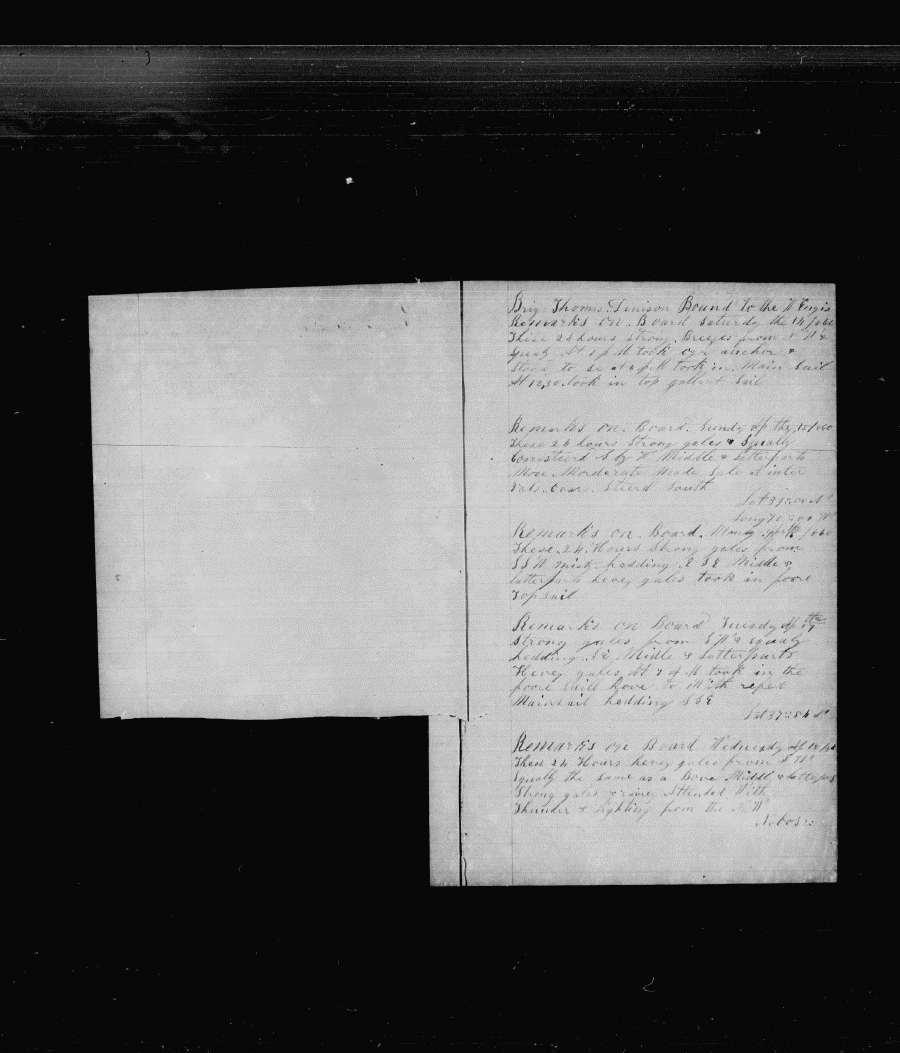 Brig Thomas Denison Bound to the W Engis
Remarks on Board Saturdy the 14/1860
These 24 hours strong Breezes from N W &
squaly At 1 p M took oyr anchor &
stood to se at 6 p M took in Main Sail
At 12,30 took in top gallant Sail
Remarks on Board Sundy Ap the 15/1860
These 24 hours Strong gales & Squally
S by W Middle & latterparts
More Morderate Made Sale at inter
vals Steerd South
Lat 39::00 N
Remarks on Board Mondy Apr 16 /1860
These 24 Hours Strong gales from
S S W hedding E S E Middle &
latterparts hevey gales took in foore
Topsail
Remarks on Board Tuesdy Ap the 17
Strong gales from S W & squaly
hedding S E Midle & latterparts
Hevey gales At 7 A M took in the
foore Saill hove to With reept
Mainsail hedding S S E
Lat 37::54 N
Remarks on Board Wednesdy Ap 18/1860
These 24 Hours hevey gales from S W
Squally the same as a Bove Middl & latterparts
Strong gales & raine Attended With
Thunder & lighting from the N W
No bos::